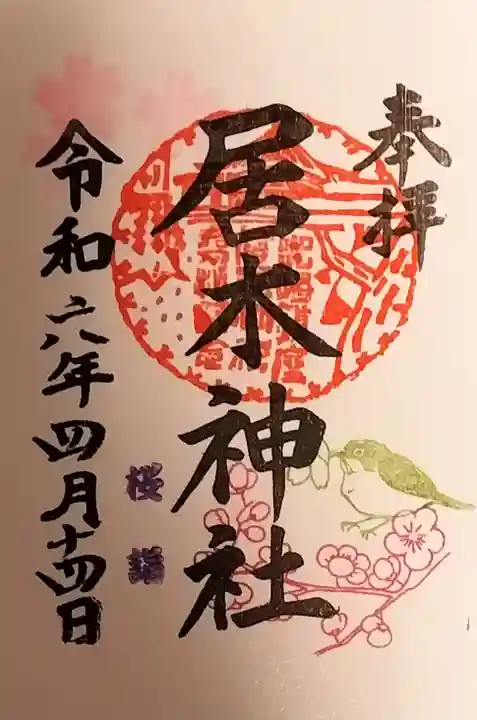 奉拝
居木神社
桜詣
令和六年四月十四日